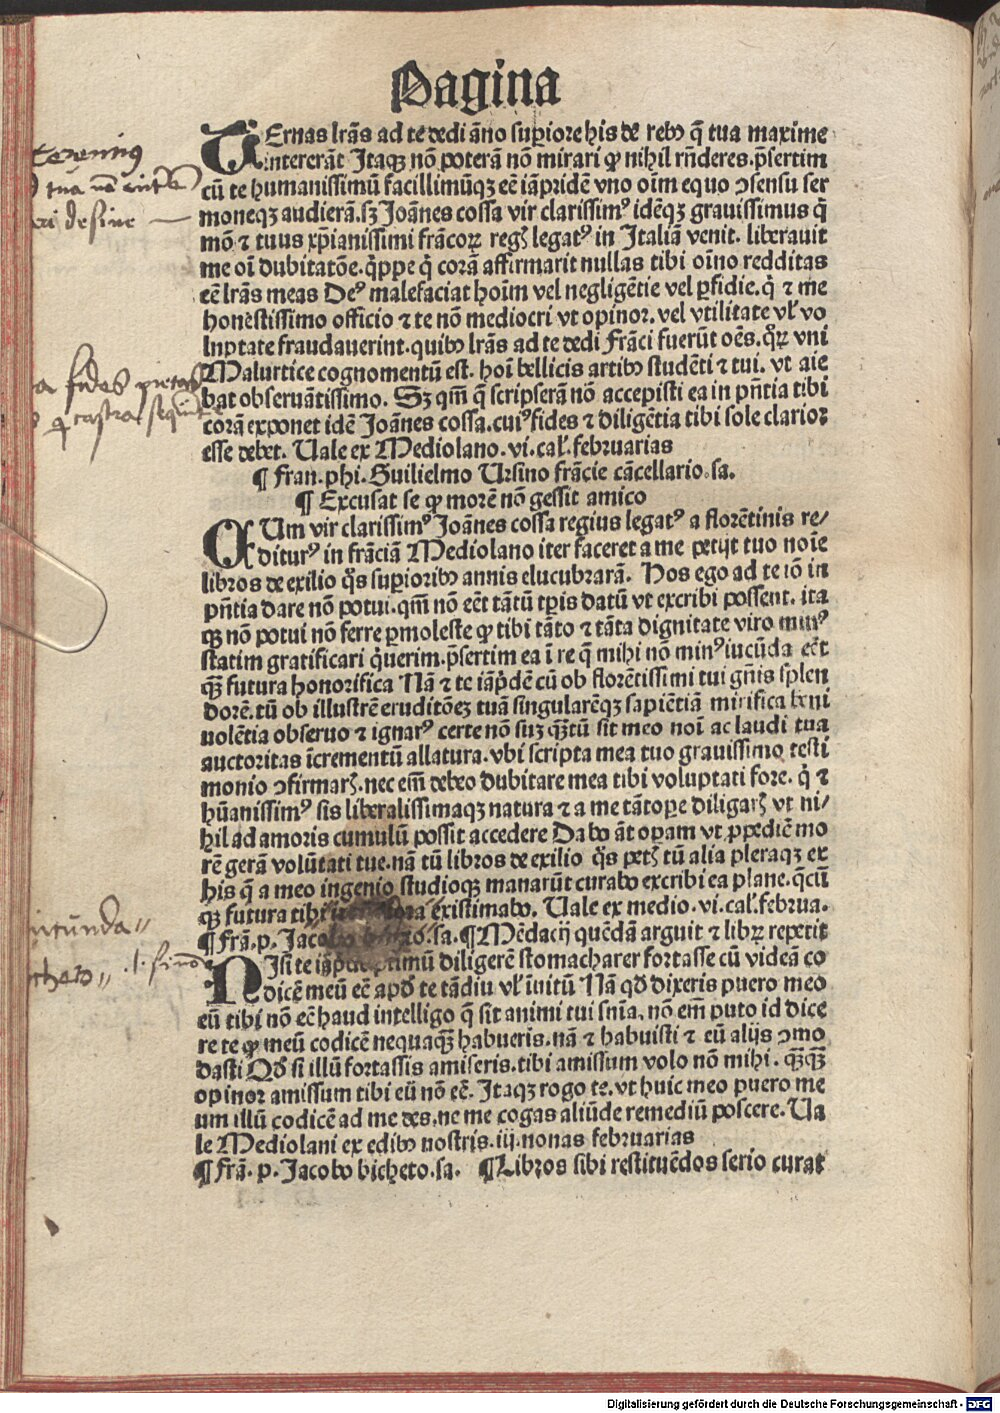 Pagina
TErnas lr̃as ad te dedi ãno supiore his de rebꝰ q̃ tua maxime
intererãt Itaqꝫ nõ poterã nõ mirari ꝙ nihil rñderes. p̃sertim
cũ te humanissimũ facillimũqꝫ eẽ iãpridẽ vno oĩm equo ↄsensu ser
moneqꝫ audierã. sꝫ Joãnes cossa vir clarissimꝰ idẽqꝫ grauissimus q̃
mõ ⁊ tuus xp̃ianissimi frãcoꝝ regꝭ legatꝰ in Italiã venit. liberauit
me oĩ dubitatõe. q̃ppe q̃ corã affirmarit nullas tibi oĩno redditas
eẽ lr̃as meas Deꝰ malefaciat hoĩm vel negligẽtie vel ꝑfidie. q̃ ⁊ me
honestissimo officio ⁊ te nõ mediocri vt opinor. vel vtilitate vl' vo
luptate fraudauerint. quibꝰ lr̃as ad te dedi Frãci fuerũt oẽs. q̃ꝝ vni
Malurtice cognomentũ est. hoĩ bellicis artibꝰ studẽti ⁊ tui. vt aie
bat obseruãtissimo. Sꝫ qm̃ q̃ scripserã nõ accepisti ea in pñtia tibi
corã exponet idẽ Joãnes cossa. cuiꝰ fides ⁊ diligẽtia tibi sole clarior
esse debet. Uale ex Mediolano. vi. cal'. februarias
¶ Fran. phi. Guilielmo Ursino frãcie cãcellario. sa.
¶ Excusat se ꝙ morẽ nõ gessit amico
CUm vir clarissimꝰ Joãnes cossa regius legatꝰ a florẽtinis re/
diturꝰ in frãciã Mediolano iter faceret a me petijt tuo noĩe
libros de exilio q̃s supioribꝰ annis elucubrarã. Hos ego ad te iõ in
pñtia dare nõ potui. qm̃ nõ eẽt tãtũ tp̃is datũ vt excribi possent. ita
qꝫ nõ potui nõ ferre ꝑmoleste ꝙ tibi tãto ⁊ tãta dignitate viro minꝰ
statim gratificari q̃uerim. p̃sertim ea ĩ re q̃ mihi nõ minꝰ iucũda eẽt
qꝫ̃ futura honorifica Nã ⁊ te iãp̃dẽ cũ ob florẽtissimi tui gñis splen
dorẽ. tũ ob illustrẽ eruditõeꝫ tuã singularẽqꝫ sapiẽtiã mirifica beni
uolẽtia obseruo ⁊ ignarꝰ certe nõ suꝫ qꝫ̃tũ sit meo noĩ ac laudi tua
auctoritas ĩcrementũ allatura. vbi scripta mea tuo grauissimo testi
monio ↄfirmarꝭ. nec em̃ debeo dubitare mea tibi voluptati fore. q̃ ⁊
hũanissimꝰ sis liberalissimaqꝫ natura ⁊ a me tãtope diligarꝭ vt ni/
hil ad amoris cumulũ possit accedere Dabo ãt opam vt ꝓpediẽ mo
rẽ gerã volũtati tue. nã tũ libros de exilio q̃s petꝭ tũ alia pleraqꝫ ex
his q̃ a meo ingenio studioqꝫ manarũt curabo excribi ea plane. q̃cũ
qꝫ futura tibi existimabo. Uale ex medio. vi. cal'. februa.
¶ Frã. p. Jacobo sa. ¶ Mẽdacij quẽdã arguit ⁊ libꝝ repetit
NIsi te diligerẽ stomacharer fortasse cũ videã co
dicẽ meũ eẽ apd̃ te tãdiu vl' ĩuitũ Nã qd̃ dixeris puero meo
eũ tibi nõ eẽ haud intelligo q̃ sit animi tui snĩa. nõ em̃ puto id dice
re te ꝙ meũ codicẽ nequaqꝫ̃ habueris. nã ⁊ habuisti ⁊ eũ alijs ↄmo
dasti Qd̃ si illũ fortassis amiseris. tibi amissum volo nõ mihi. qꝫ̃qꝫ̃
opinor amissum tibi eũ nõ eẽ. Itaqꝫ rogo te. vt huic meo puero me
um illũ codicẽ ad me des. ne me cogas aliũde remediũ poscere. Ua
le Mediolani ex edibꝰ nostris. iij. nonas februarias
¶ Frã. p. Jacobo bicheto. sa. ¶ Libros sibi restituẽdos serio curat
Digitalisierung gefördert durch die Deutsche Forschungsgemeinschaft - DFG